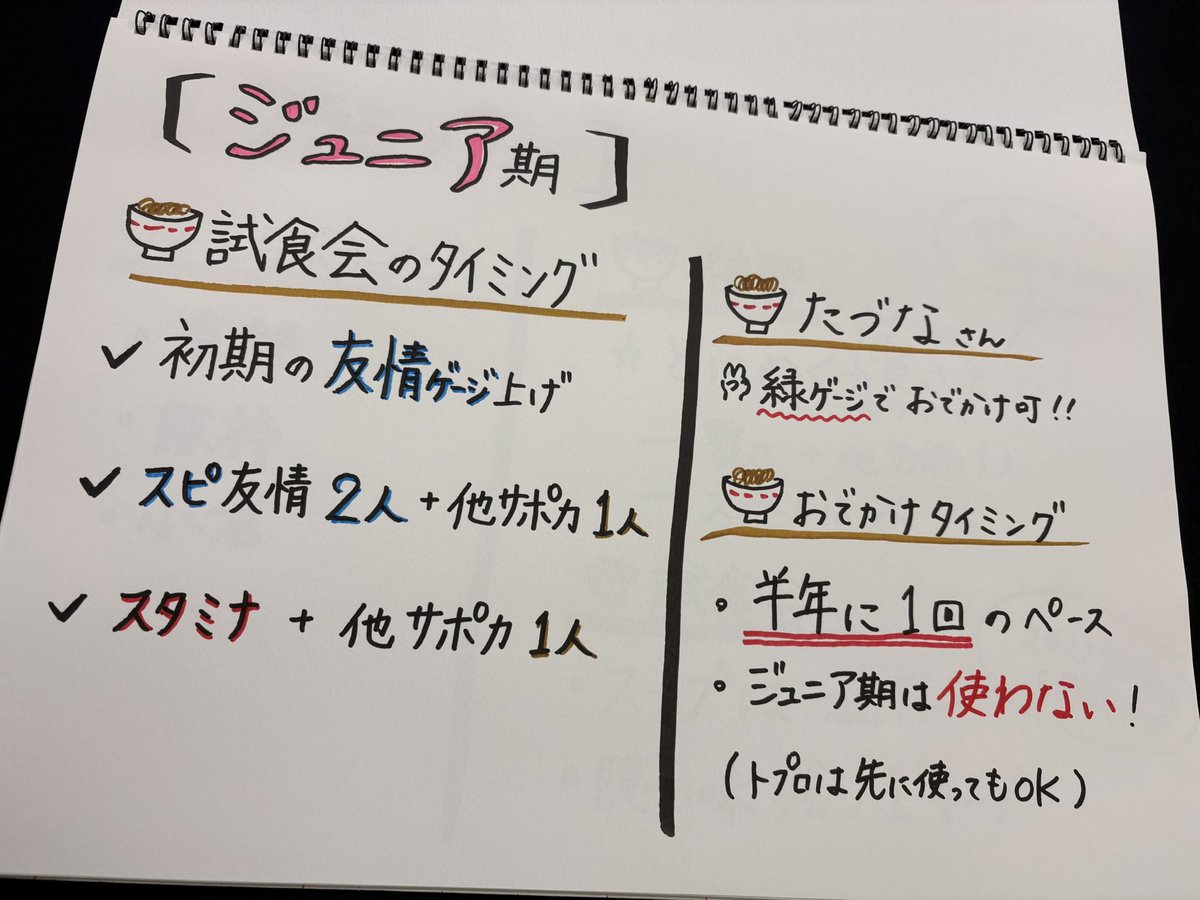 ［ジュニア期］
試食会のタイミング
✓ 初期の友情ゲージ上げ
✓ スピ友情2人+他サポカ1人
✓ スタミナ + 他サポカ1人
たづなさん
緑ゲージでおでかけ可!!
おでかけタイミング
・半年に1回のペース
・ジュニア期は使わない!
(トプロは先に使ってもOK)